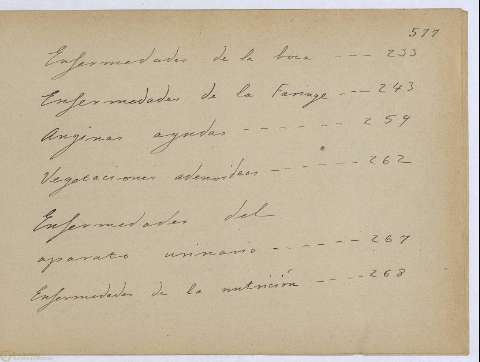 577
Enfermedades de la boca --- 233
Enfermedades de la Faringe --- 243
Anginas agudas ------- 259
Vegetaciones adenoideas ------ 262
Enfermedades del
aparato urinario ------ 267
Enfermedades de la nutrición ---- 268